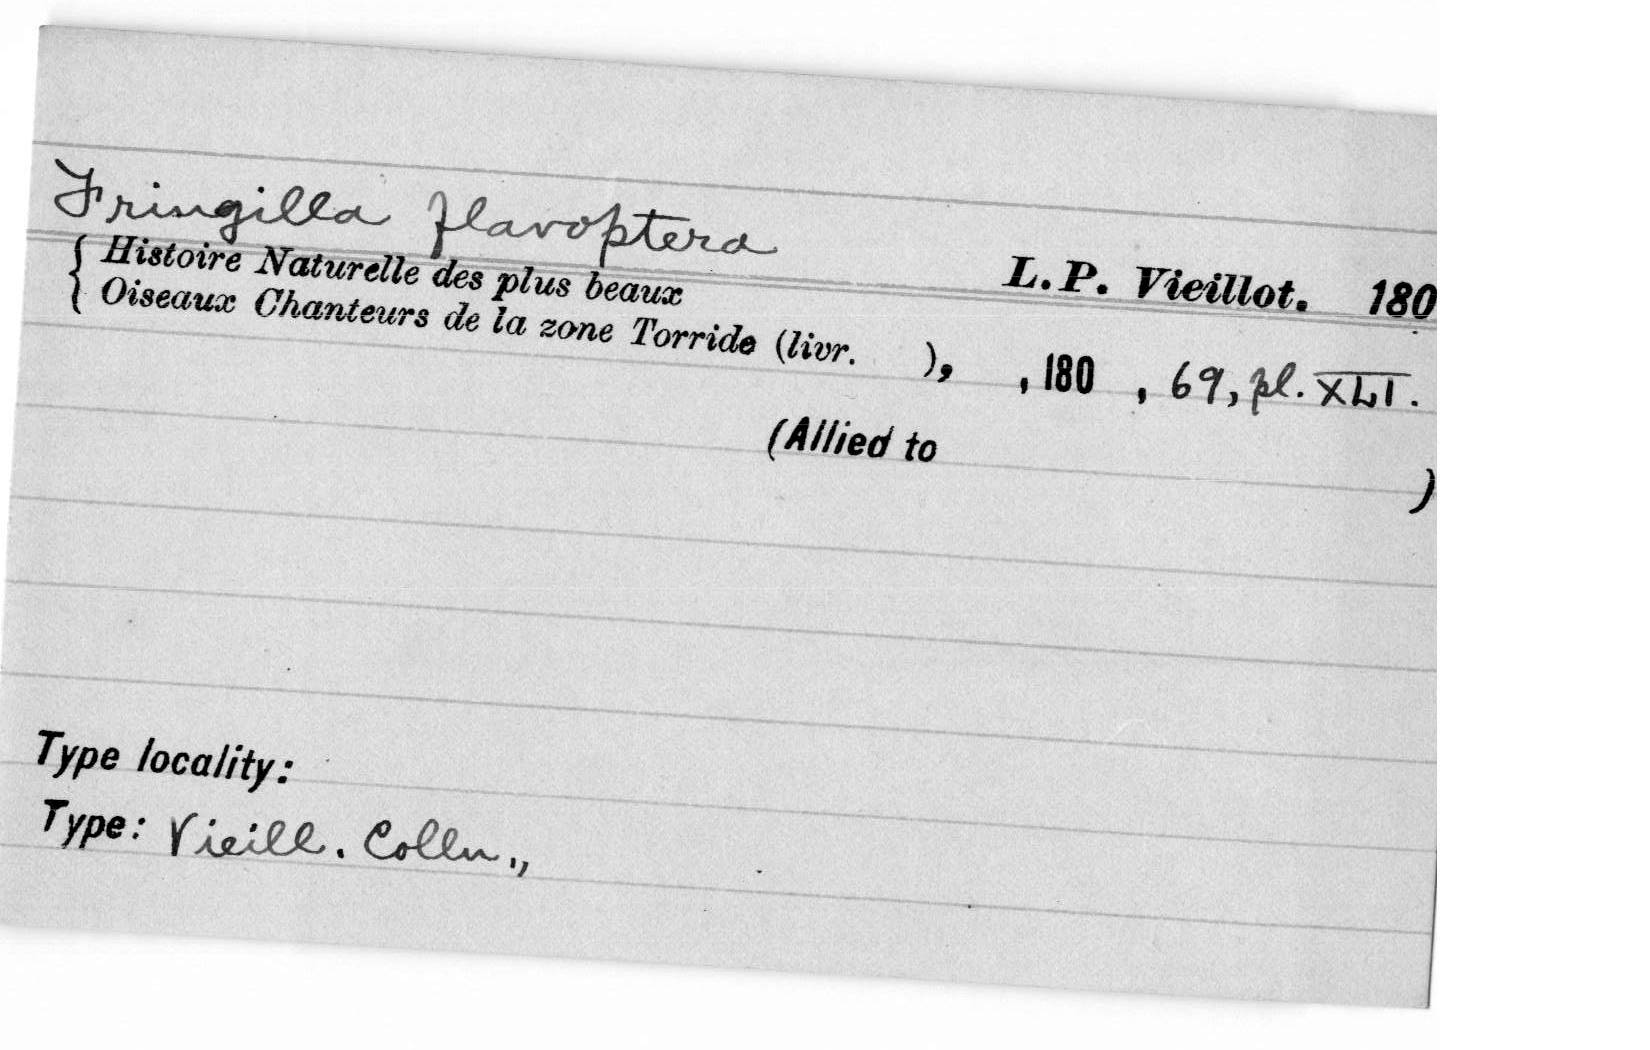 Fringilla flavoptera
{ Histoire Naturelle des plus beaux
Oiseaux Chanteurs de la zone Torride (livr. ),
L. P. Vieillot. 180
, 180 , 69, pl. XLI.
(Allied to )
Type locality:
Type: Vieill. Colln.,,